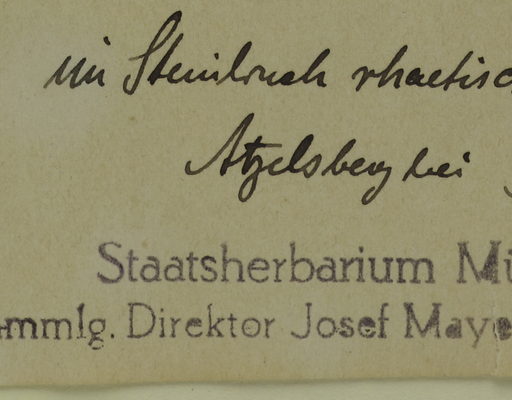 im Steinbruch rhaetisc
Atzelsberg bei
Staatsherbarium Mü
ammlg. Direktor Josef Maye